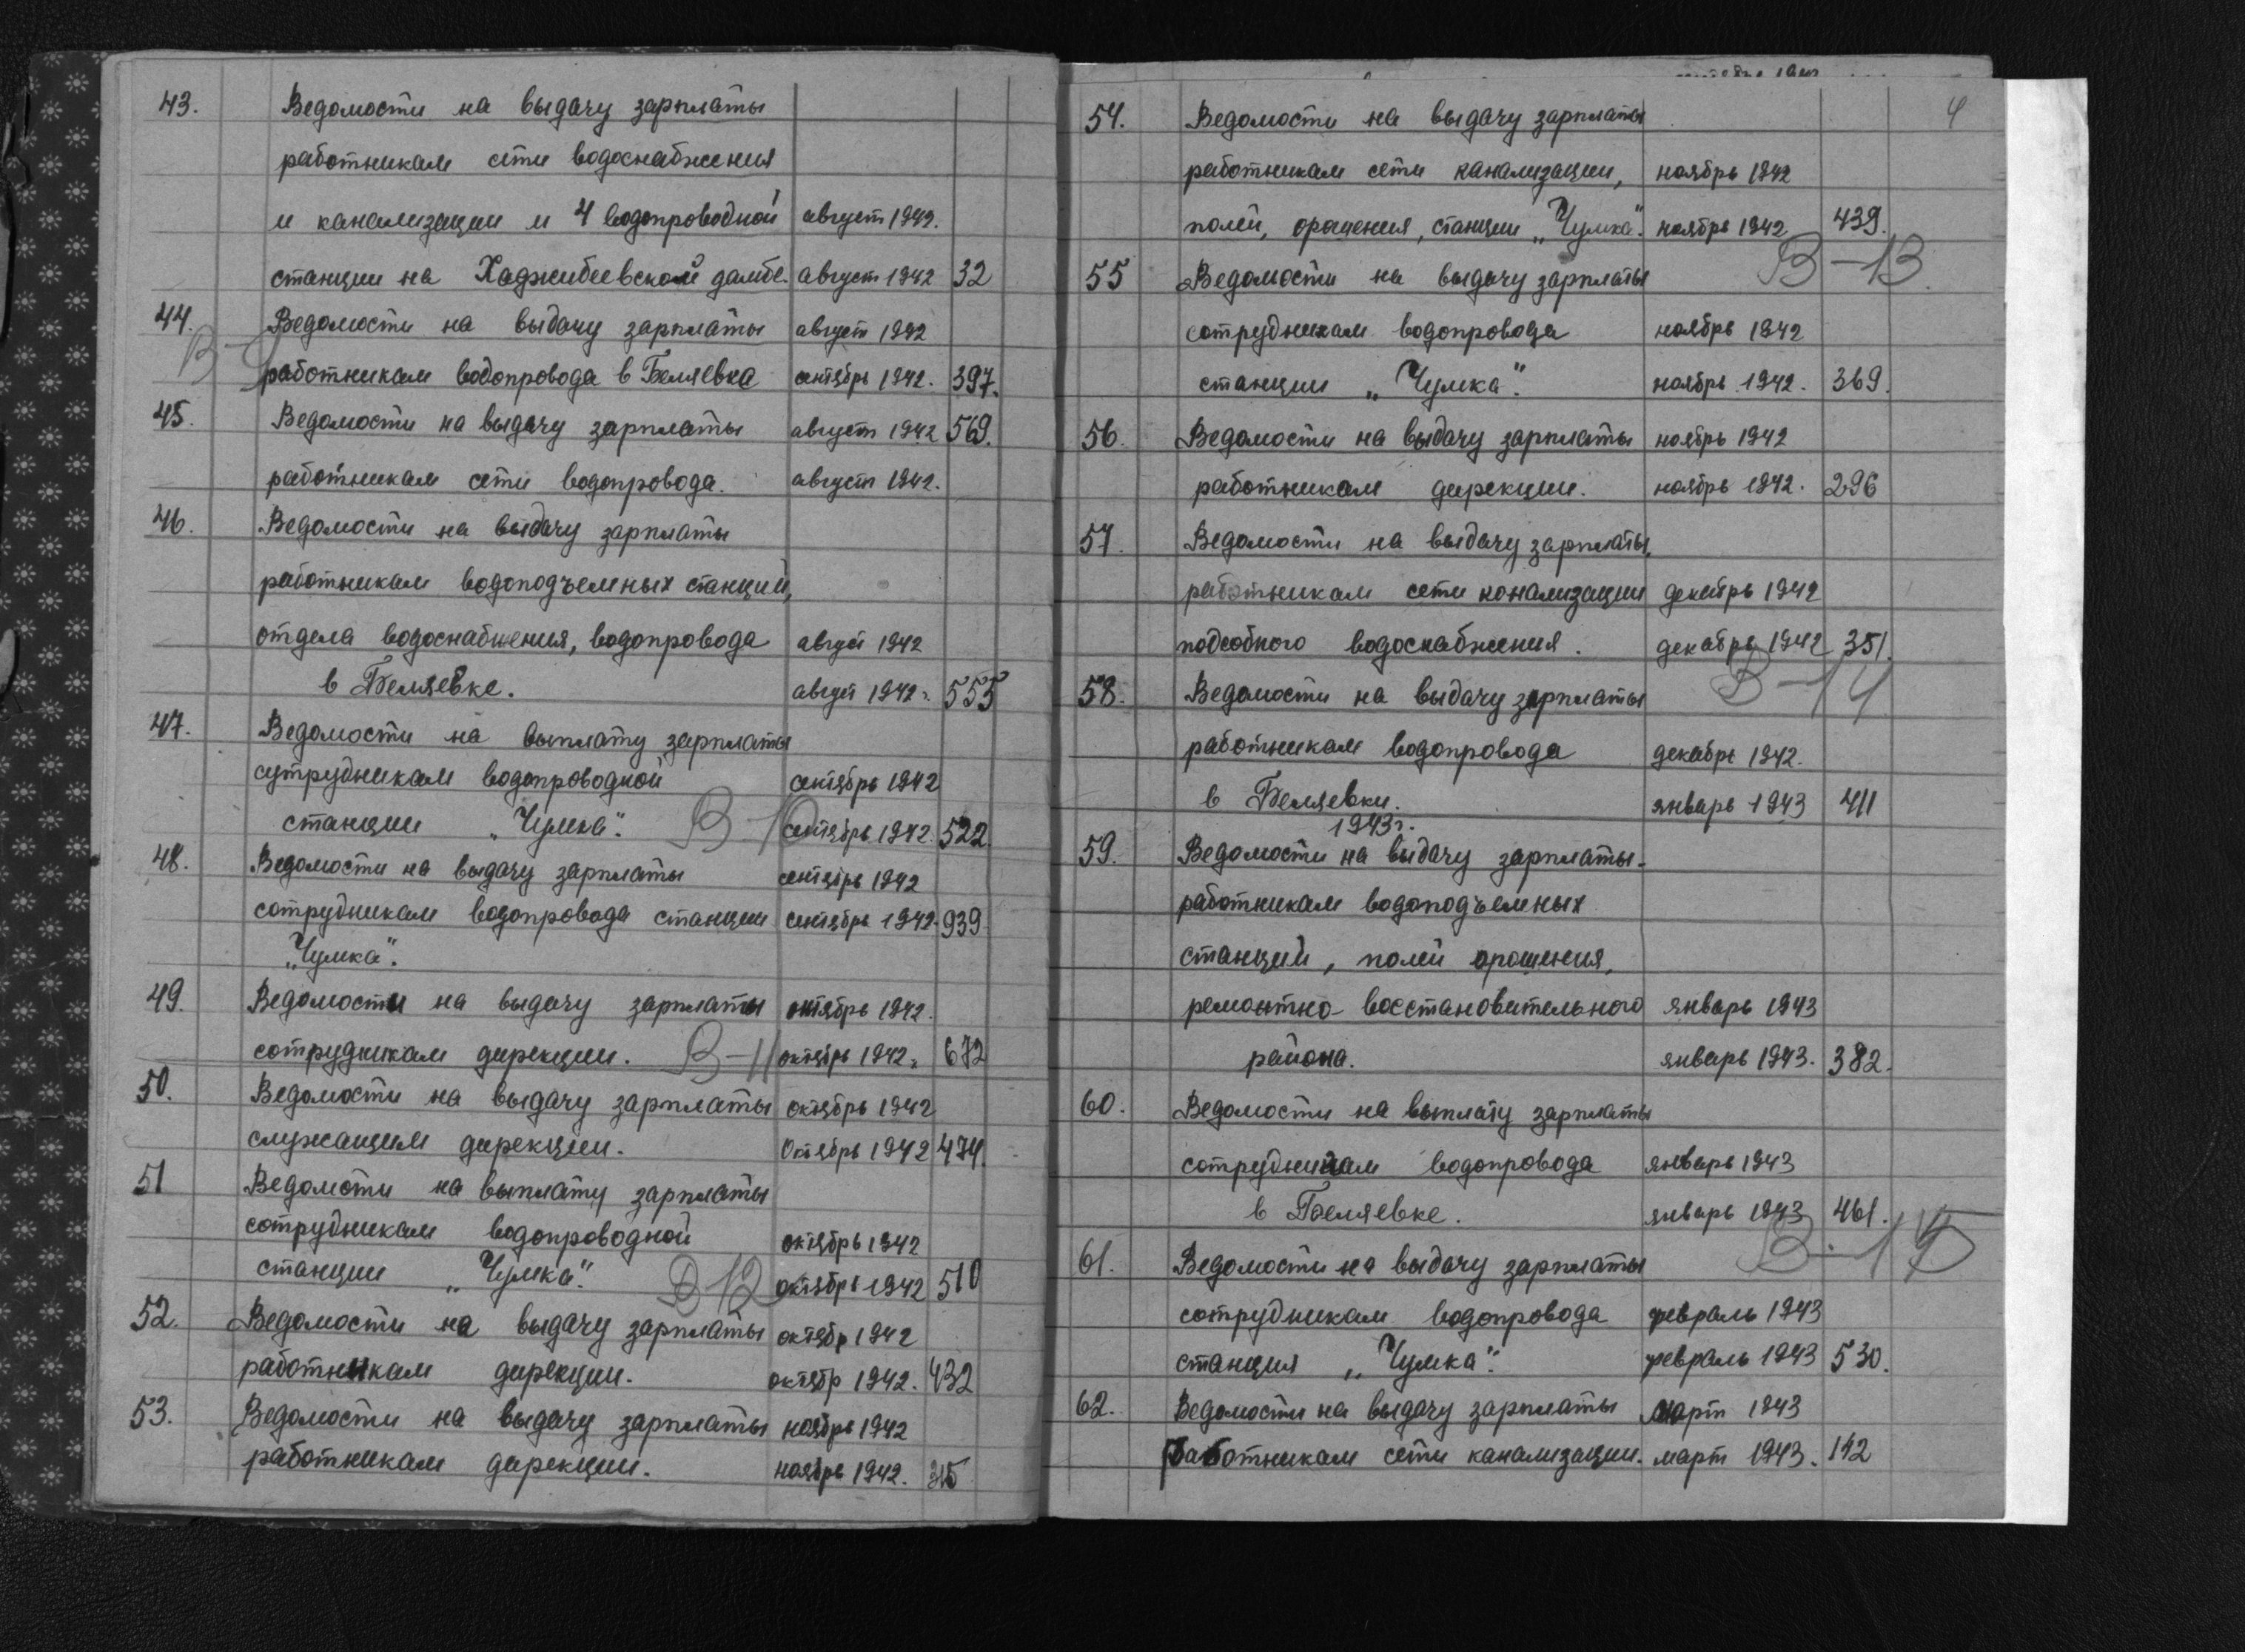 43. Ведомости на выдачу зарплаты
работникам сети водоснабжения
и канализации и 4 водопроводной август 1942.
станции на Хаджибеевской дамбе. август 1942 32
44. Ведомости на выдачу зарплаты август 1942
В-9 работникам водопровода в Беляевка сентябрь 1942. 397.
45. Ведомости на выдачу зарплаты август 1942 569.
работникам сети водопровода. август 1942.
46. Ведомости на выдачу зарплаты
работникам водоподъемных станций,
отдела водоснабжения, водопровода август 1942
в Беляевке. август 1942. 555
47. Ведомости на выплату зарплаты
сотрудникам водопроводной сентябрь 1942
станции „Чумка". В-10 сентябрь 1942. 522.
48. Ведомости на выдачу зарплаты сентябрь 1942
сотрудникам водопровода станции сентябрь 1942. 939.
„Чумка".
49. Ведомости на выдачу зарплаты октябрь 1942.
сотрудникам дирекции. В-11 октябрь 1942. 672
50. Ведомости на выдачу зарплаты октябрь 1942
служащим дирекции. Октябрь 1942 474.
51 Ведомоти на выплату зарплаты
сотрудникам водопроводной октябрь 1942
станции „Чумка". В 12 октябрь 1942 510
52. Ведомости на выдачу зарплаты октябр 1942
работникам дирекции. октябр 1942. 432
53. Ведомости на выдачу зарплаты ноябрь 1942
работникам дирекции. ноябрь 1942. 315
4
54. Ведомости на выдачу зарплаты
работникам сети канализации, ноябрь 1942
полей, орошения, станции „Чумка". ноябрь 1942 439.
В-13
55 Ведомости на выдачу зарплаты
сотрудникам водопровода ноябрь 1942
станции „Чумка". ноябрь 1942. 369.
56. Ведомости на выдачу зарплаты ноябрь 1942
работникам дирекции. ноябрь 1942. 296
57. Ведомости на выдачу зарплаты,
работникам сети конализации декабрь 1942
подсобного водоснабжения. декабрь 1942 351.
В-14
58. Ведомости на выдачу зарплаты
работникам водопровода декабрь 1942.
в Беляевки. январь 1943 411
1943г.
59. Ведомости на выдачу зарплаты-
работникам водоподъемных
станций, полей орошения,
ремонтно-восстановительного январь 1943
района. январь 1943. 382.
60. Ведомости на выплату зарплаты
сотрудникам водопровода январь 1943
в Беляевке. январь 1943 461.
В-15
61. Ведомости на выдачу зарплаты
сотрудникам водопровода февраль 1943
станция „Чумка". февраль 1943 530.
62. Ведомости на выдачу зарплаты март 1943
работникам сети канализации. март 1943. 142